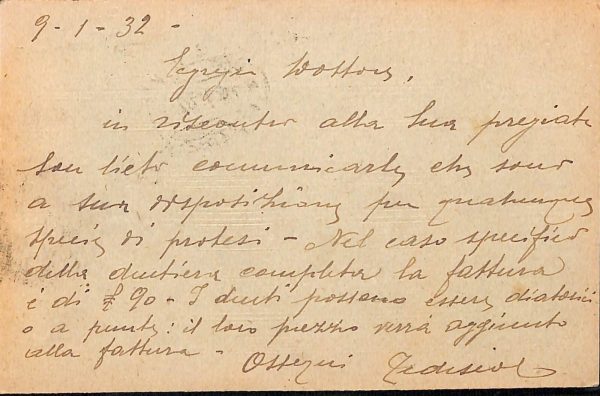 9-1-32-
Egregio Dottore,
in riscontro alla Sua pregiata
son lieto comunicarle che sono
a sua disposizione per qualunque
specie di protesi - Nel caso specifico
della dentiera completa la fattura
è di £ 90 - I denti possono essere diatorici
o a punte: il loro prezzo verrà aggiunto
alla fattura -
Ossequi